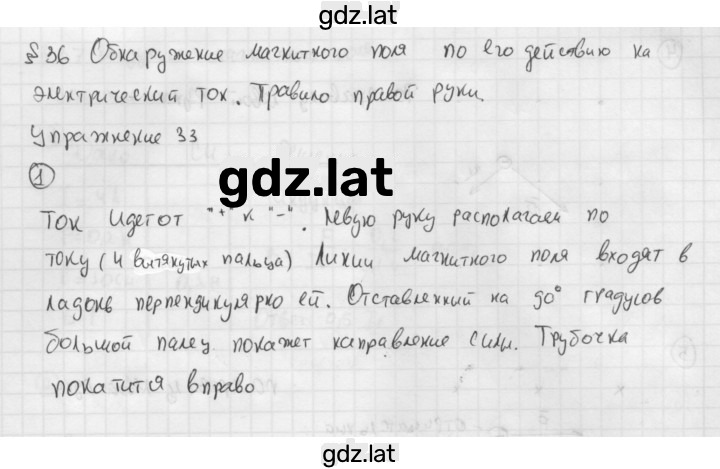 gdz.lat
§ 36 Обнаружение магнитного поля по его действию на
электрический ток. Правило правой руки.
Упражнение 33
1
gdz.lat
Ток идет от "+" к "-". Левую руку располагаем по
току (4 вытянутых пальца) Линии магнитного поля входят в
ладонь перпендикулярно ей. Отставленный на 90° градусов
большой палец покажет направление силы. Трубочка
покатится вправо
gdz.lat